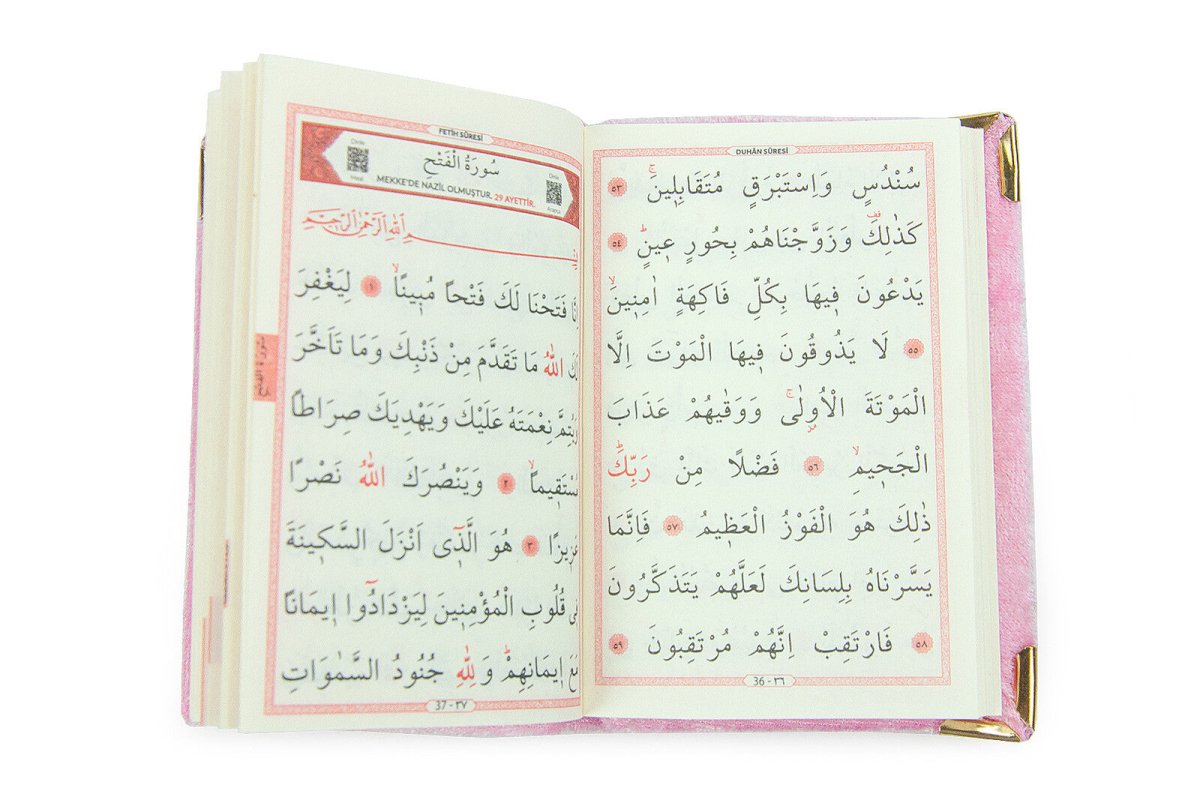 DUHÂN SÛRESİ
سُنْدُسٍ وَاِسْتَبْرَقٍ مُتَقَابِلٖينَۚ ٥٣
كَذٰلِكَ۠ وَزَوَّجْنَاهُمْ بِحُورٍ عٖينٍؕ ٥٤
يَدْعُونَ فٖيهَا بِكُلِّ فَاكِهَةٍ اٰمِنٖينَۙ
٥٥ لَا يَذُوقُونَ فٖيهَا الْمَوْتَ اِلَّا
الْمَوْتَةَ الْاُولٰىۚ وَوَقٰيهُمْ عَذَابَ
الْجَحٖيمِۙ ٥٦ فَضْلًا مِنْ رَبِّكَؕ
ذٰلِكَ هُوَ الْفَوْزُ الْعَظٖيمُ ٥٧ فَاِنَّمَا
يَسَّرْنَاهُ بِلِسَانِكَ لَعَلَّهُمْ يَتَذَكَّرُونَ
٥٨ فَارْتَقِبْ اِنَّهُمْ مُرْتَقِبُونَ ٥٩
36 - ٣٦
FETİH SÛRESİ
Dinle
Meal
سُورَةُ الْفَتْحِ
MEKKE'DE NAZİL OLMUŞTUR. 29 AYETTİR.
Dinle
Arapça
اللّٰهِ الرَّحْمٰنِ الرَّحٖيمِ
فَتَحْنَا لَكَ فَتْحًا مُبٖينًاۙ ١ لِيَغْفِرَ
اللّٰهُ مَا تَقَدَّمَ مِنْ ذَنْبِكَ وَمَا تَاَخَّرَ
نِعْمَتَهُ عَلَيْكَ وَيَهْدِيَكَ صِرَاطًا
٢ وَيَنْصُرَكَ اللّٰهُ نَصْرًا
٣ هُوَ الَّذٖٓى اَنْزَلَ السَّكٖينَةَ
قُلُوبِ الْمُؤْمِنٖينَ لِيَزْدَادُٓوا اٖيمَانًا
اٖيمَانِهِمْؕ وَلِلّٰهِ جُنُودُ السَّمٰوَاتِ
37 - ٣٧
سُورَةُ الْفَتْحِ